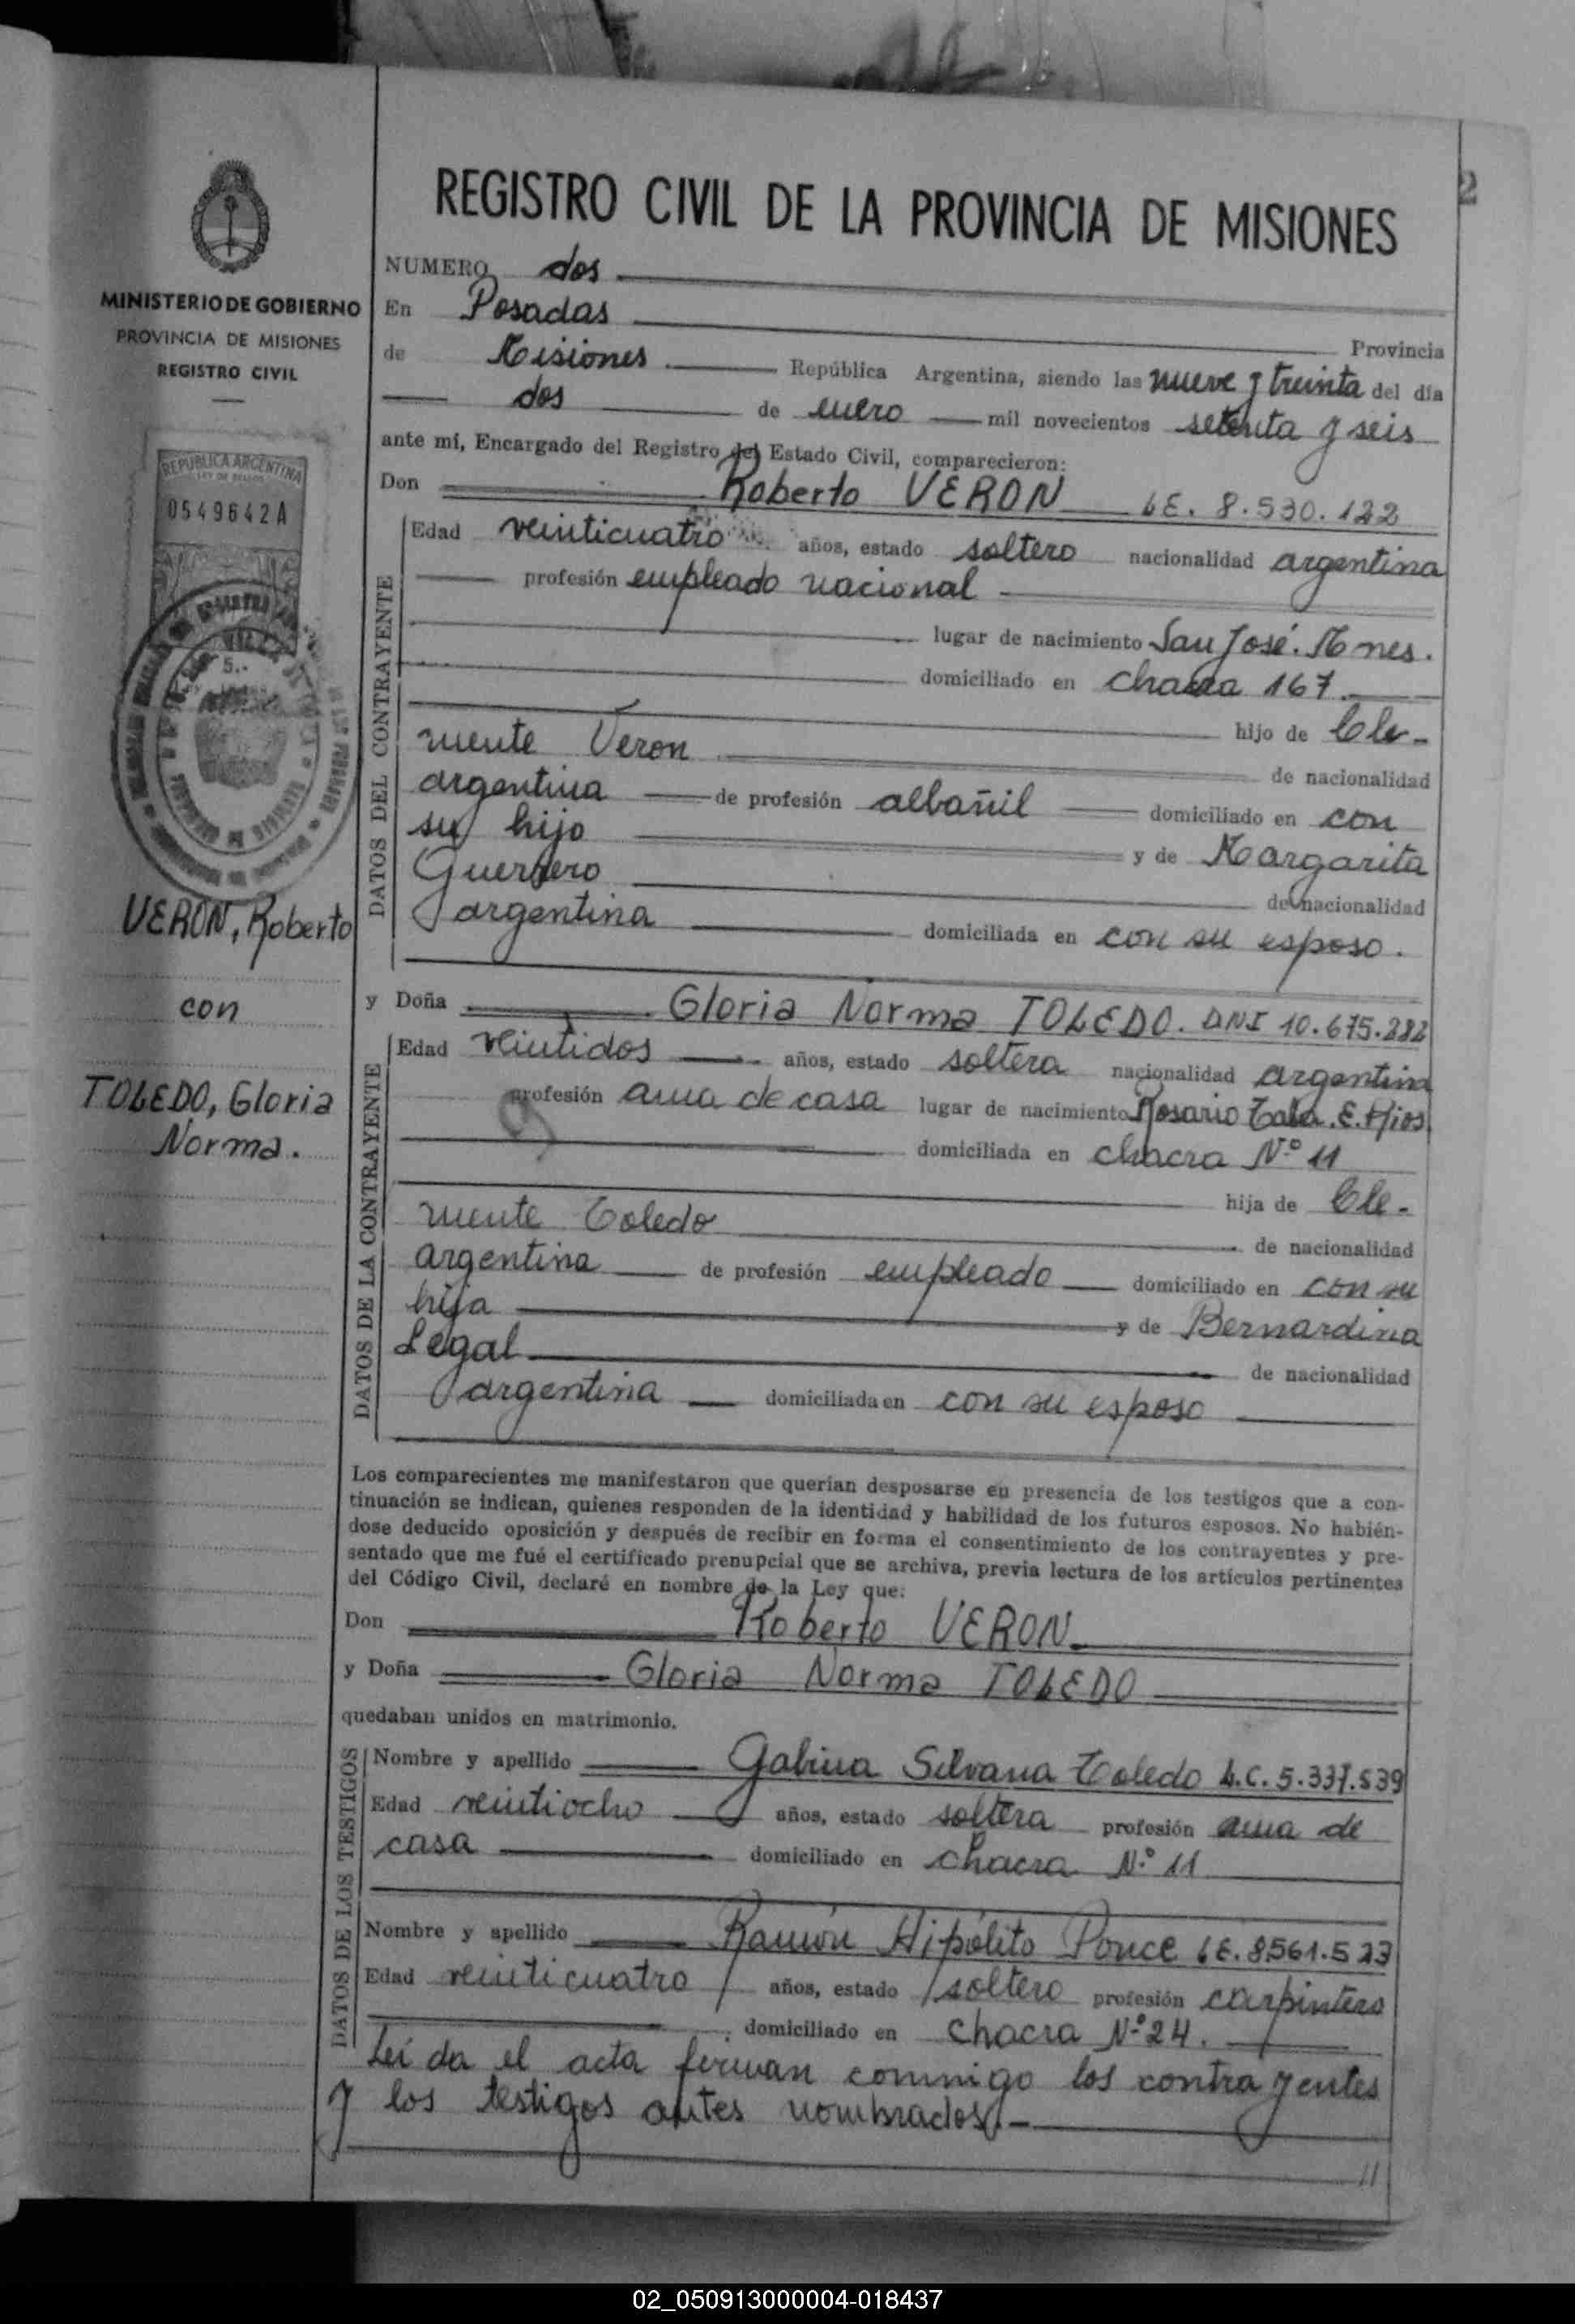 2
REGISTRO CIVIL DE LA PROVINCIA DE MISIONES
MINISTERIO DE GOBIERNO
PROVINCIA DE MISIONES
REGISTRO CIVIL
REPUBLICA ARGENTINA
LEY DE SELLOS
0549642A
5.-
VERON, Roberto
con
TOLEDO, Gloria
Norma.
NUMERO dos
En Posadas
Provincia
de Misiones República Argentina, siendo las nueve y treinta del día
dos de enero mil novecientos setenta y seis
ante mí, Encargado del Registro del Estado Civil, comparecieron:
Don Roberto VERON LE. 8.530.122
DATOS DEL CONTRAYENTE
Edad veinticuatro años, estado soltero nacionalidad argentina
profesión empleado nacional
lugar de nacimiento San José. Mnes.
domiciliado en chacra 167.
hijo de Cle-
mente Veron
de nacionalidad
argentina de profesión albañil domiciliado en con
su hijo y de Margarita
Guerrero
de nacionalidad
argentina domiciliada en con su esposo.
y Doña Gloria Norma TOLEDO. DNI 10.675.282
DATOS DE LA CONTRAYENTE
Edad veintidos años, estado soltera nacionalidad argentina
profesión ama de casa lugar de nacimiento Rosario Tala. E. Rios.
domiciliada en chacra N.º 11
hija de Cle-
mente Toledo
de nacionalidad
argentina de profesión empleado domiciliado en con su
hija y de Bernardina
Legal
de nacionalidad
argentina domiciliada en con su esposo
Los comparecientes me manifestaron que querían desposarse en presencia de los testigos que a con-
tinuación se indican, quienes responden de la identidad y habilidad de los futuros esposos. No habién-
dose deducido oposición y después de recibir en forma el consentimiento de los contrayentes y pre-
sentado que me fué el certificado prenupcial que se archiva, previa lectura de los artículos pertinentes
del Código Civil, declaré en nombre de la Ley que:
Don Roberto VERON
y Doña Gloria Norma TOLEDO
quedaban unidos en matrimonio.
DATOS DE LOS TESTIGOS
Nombre y apellido Gabina Silvana Toledo L.C. 5.337.539
Edad veintiocho años, estado soltera profesión ama de
casa domiciliado en chacra N.º 11
Nombre y apellido Ramón Hipólito Ponce LE. 8561.523
Edad veinticuatro años, estado soltero profesión carpintero
domiciliado en chacra N.º 24.
Leida el acta firman conmigo los contrayentes
y los testigos antes nombrados.-
//
02_050913000004-018437